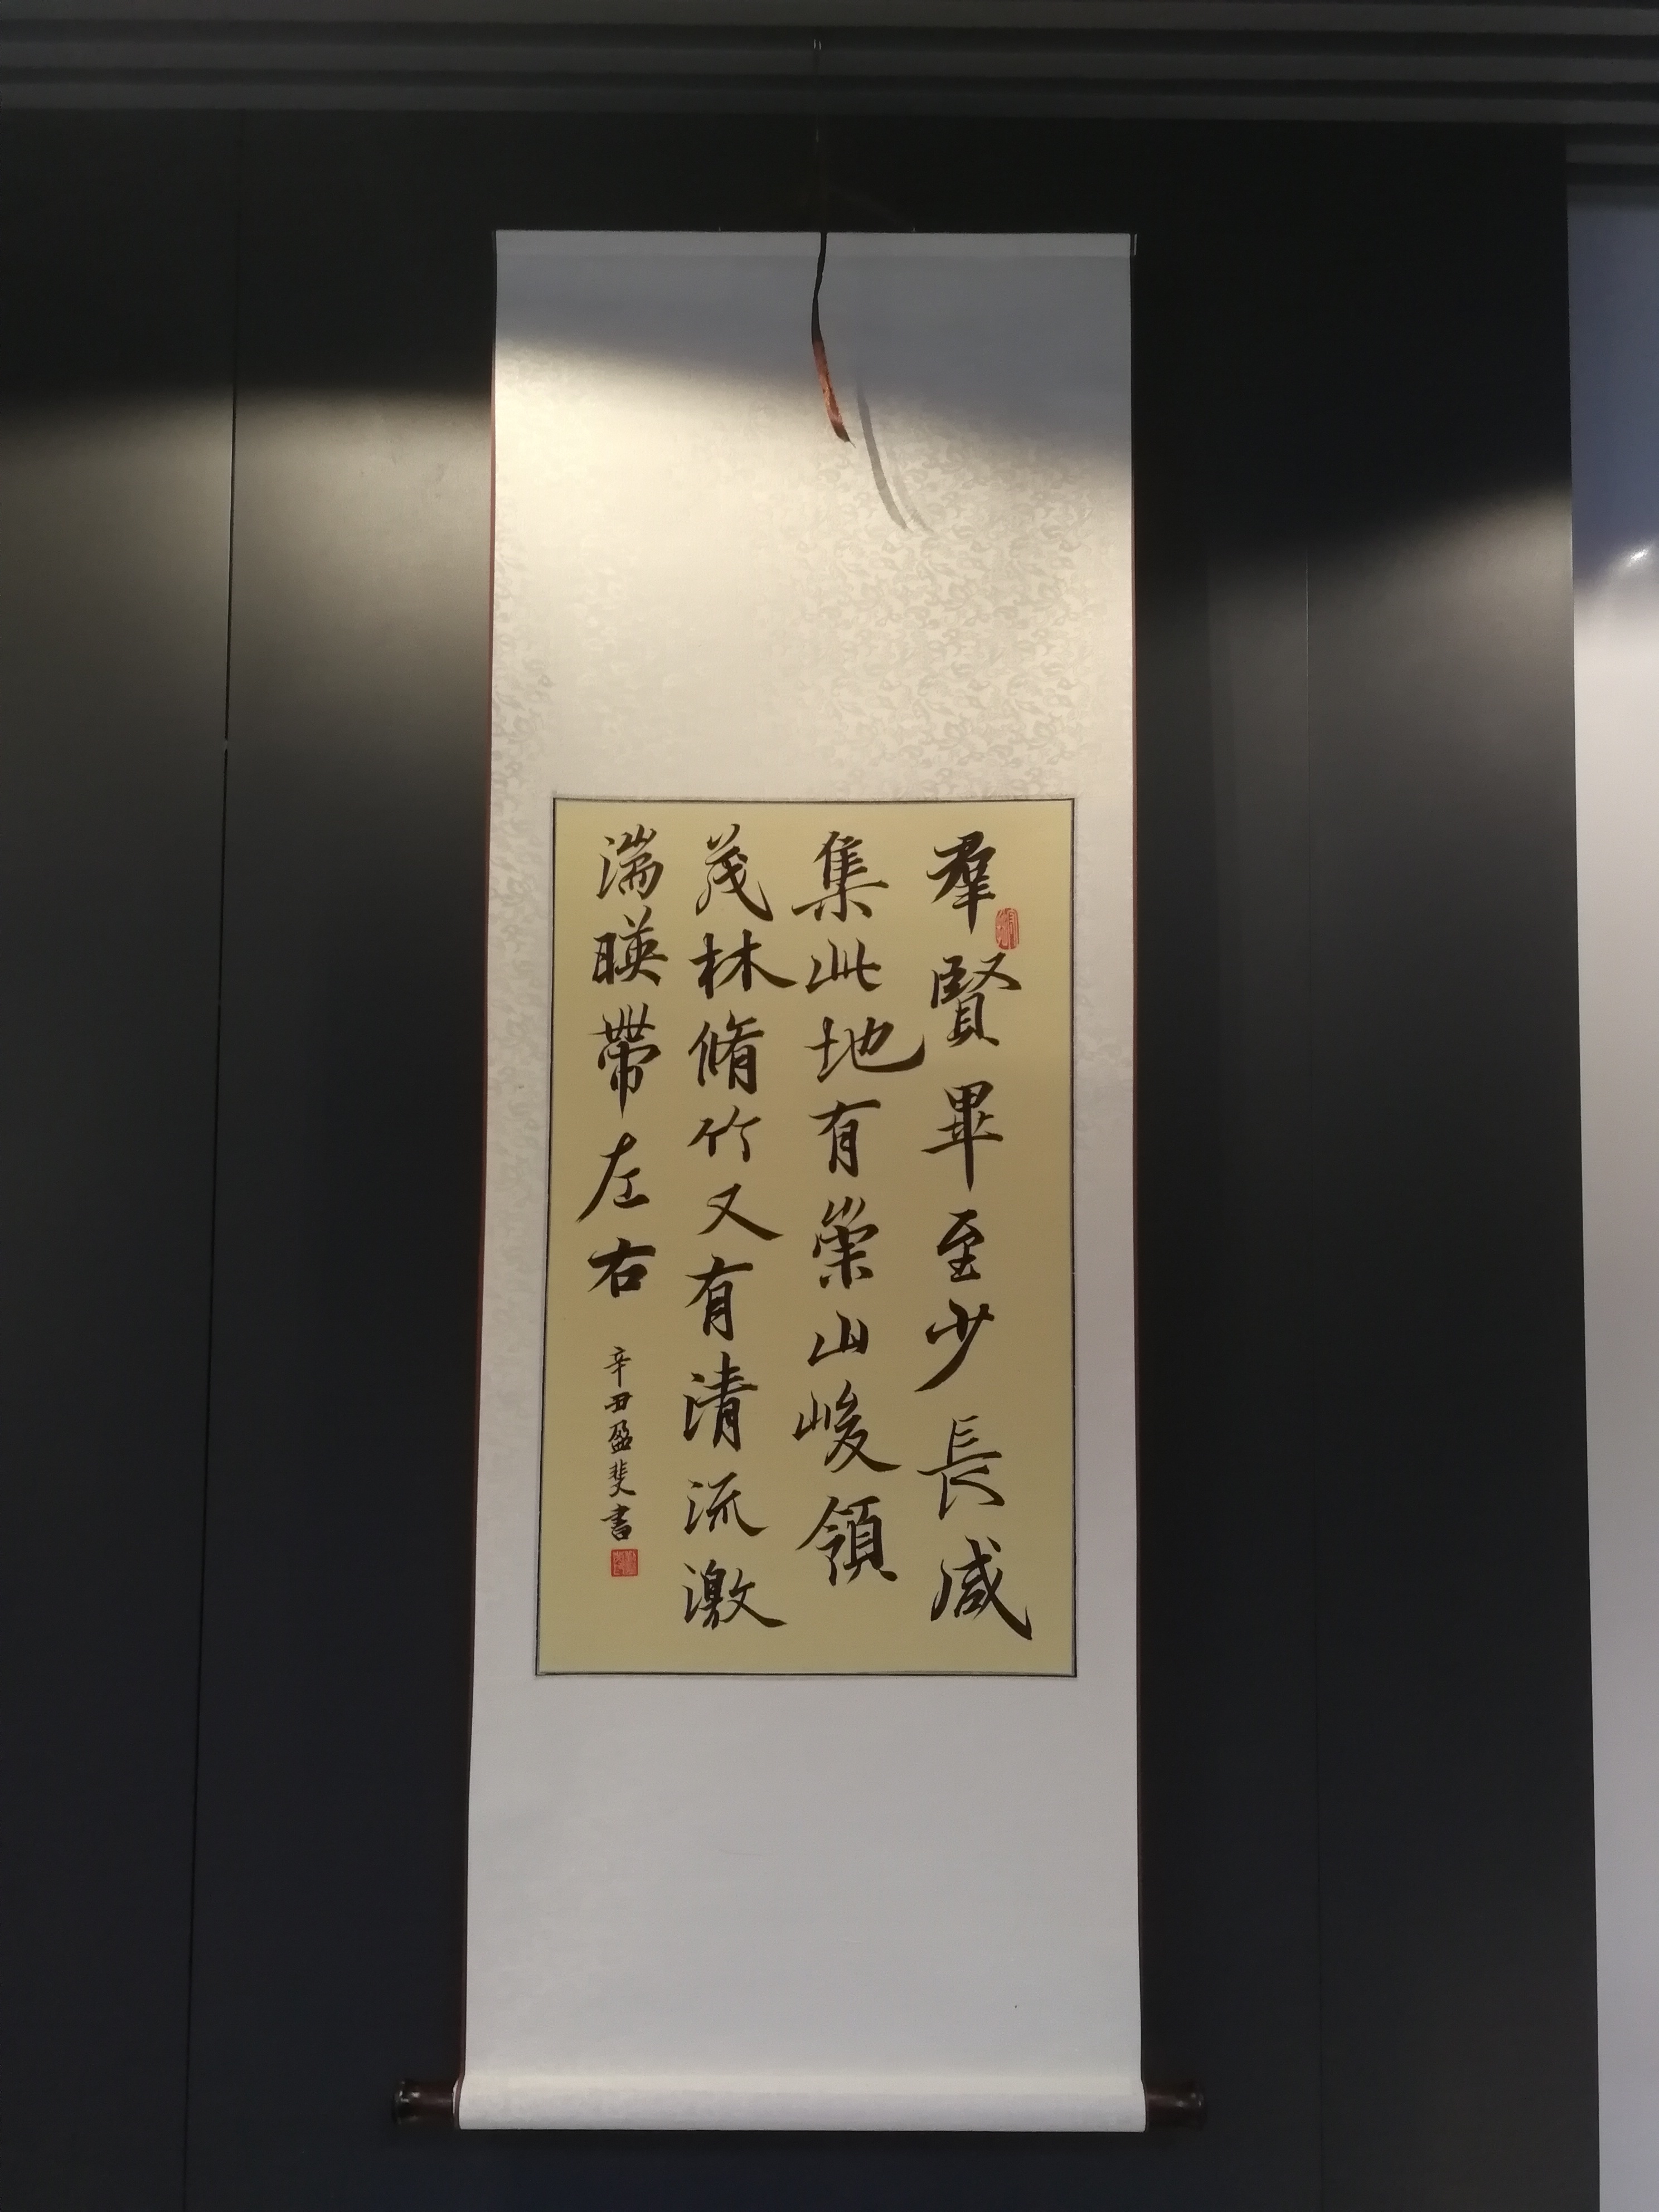 羣賢畢至少長咸
集此地有崇山峻領
茂林脩竹又有清流激
湍暎帶左右
辛丑盈斐書